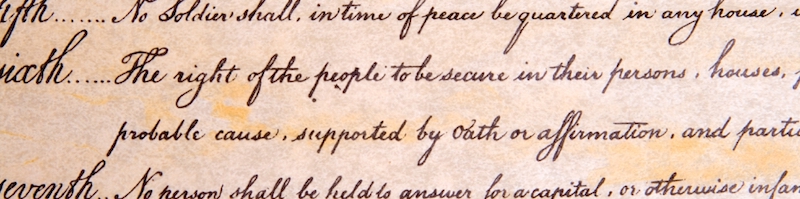 fifth....... No Soldier shall, in time of peace be quartered in any house,
sixth...... The right of the people to be secure in their persons, houses,
probable cause, supported by Oath or affirmation, and partic
seventh.. No person shall be held to answer for a capital, or otherwise infam